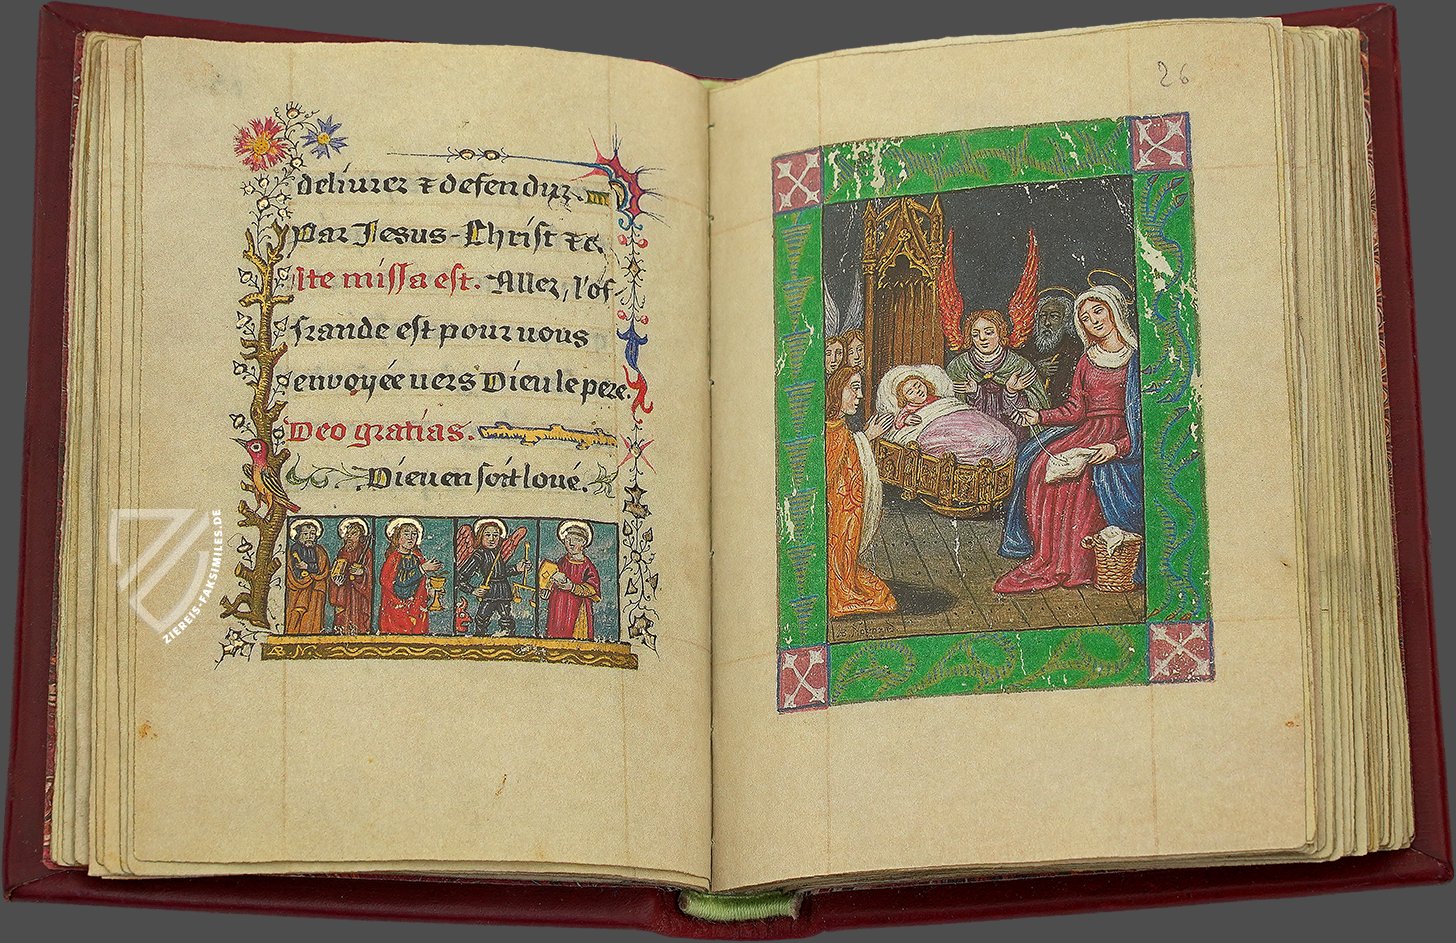 deliurer & defendur.
Par Jesus-Christ &c.
Ite missa est. Allez, l'of-
frande est pour uous
envoyée uers Dieu le pere.
Deo gratias.
Dieu en soit loué.
26
ZIEREIS-FAKSIMILES.DE